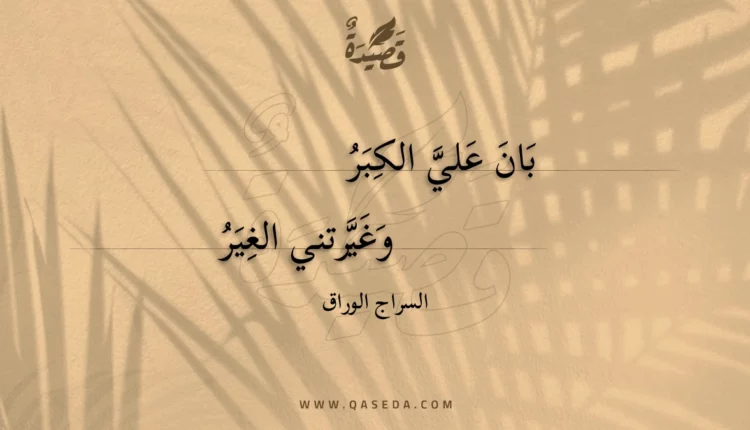 قَصِيْدَةٌ
بَانَ عَليَّ الكِبَرُ
وَغَيَّرتني الغِيَرُ
السراج الوراق
WWW.QASEDA.COM